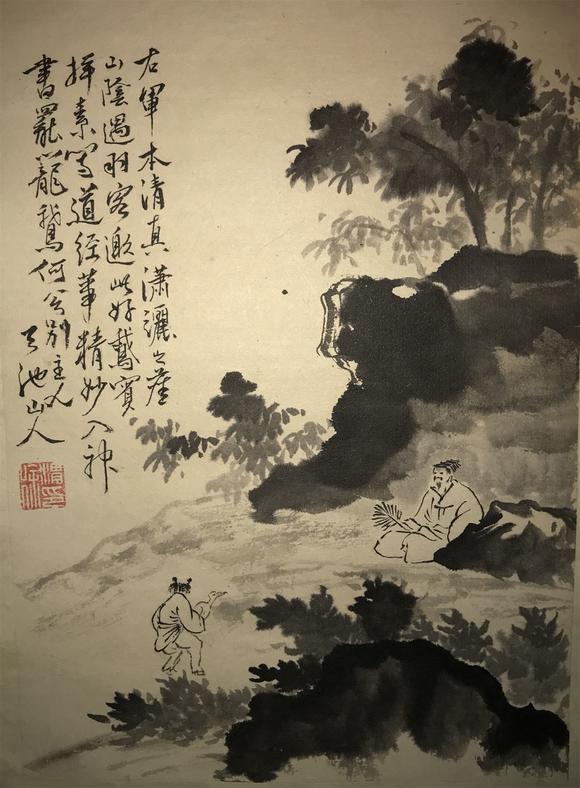 右軍本清真瀟灑
山陰遇羽客邀此好鵞賓
掃素寫道經筆精妙入神
書罷籠鵞何別主人
天池山人